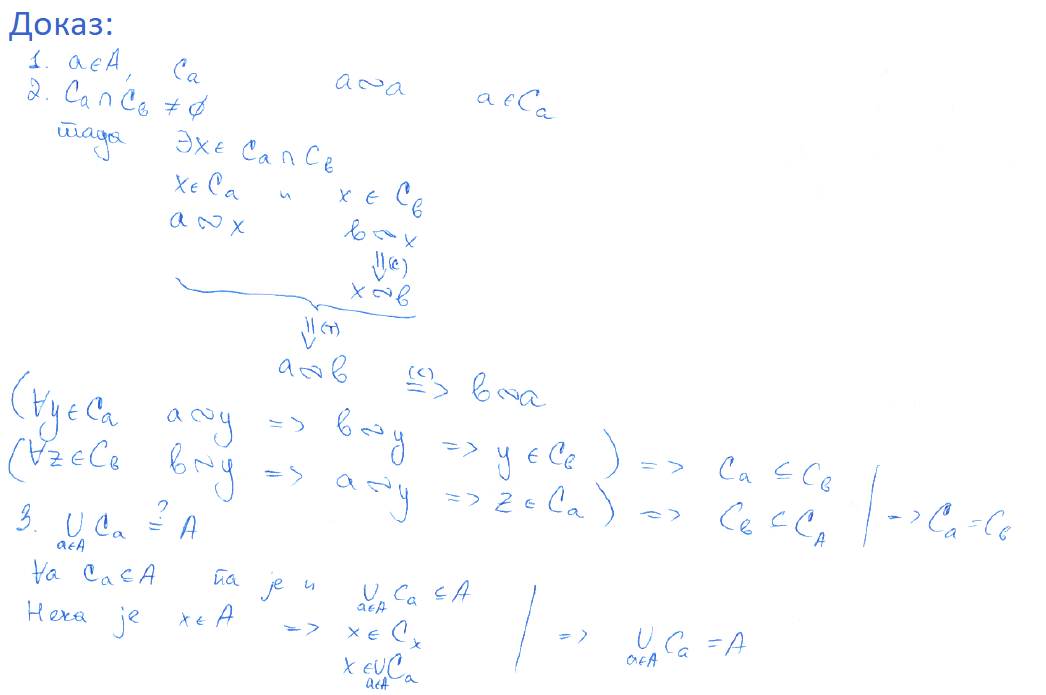 Доказ:
1. a∈A, Ca a∾a a∈Ca
2. Ca∩Cв ≠ ∅
тада ∃x∈ Ca∩Cв
x∈Ca и x∈Cв
a∾x в∾x
⇓(C)
x∾в
⇓(T)
a∾в (C)=> в∾a
(∀y∈Ca a∾y => в∾y => y∈Cв) => Ca⊆Cв
(∀z∈Cв в∾y => a∾y => z∈Ca) => Cв⊆CA | => Ca=Cв
3. ∪a∈A Ca ?= A
∀a Ca⊆A па је и ∪a∈A Ca⊆A
Нека је x∈A => x∈Cx | => ∪a∈A Ca=A
x∈∪a∈A Ca